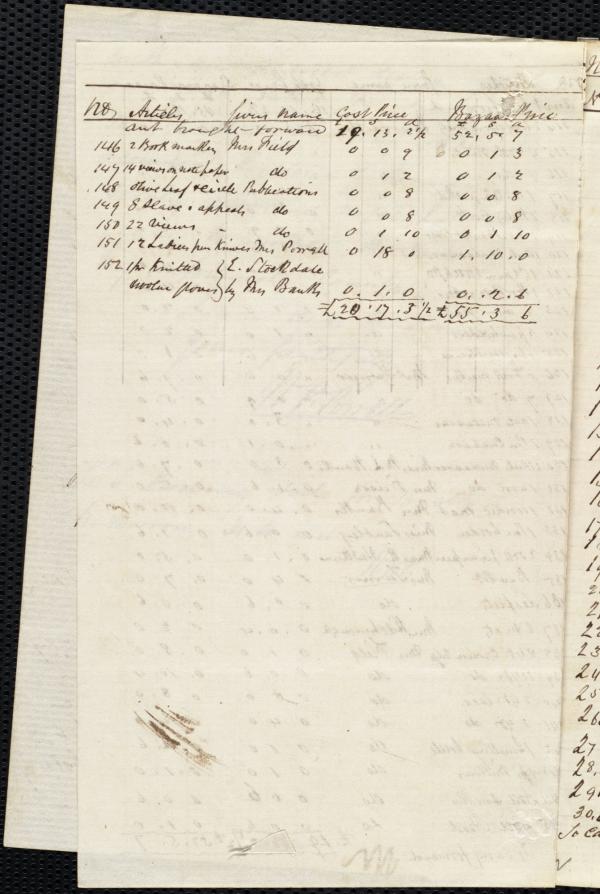 No Articles Givers Name Cost Price Bazaar Price
amt brought forward 19. 13. 2½ 52. 5. 7
146 2 Book markers Mrs Field 0 0 9 0 0 1 3
147 14 views on note paper do 0 1 2 0 1 2
148 Olive Leaf & Circle Publications 0 0 8 0 0 8
149 8 Slave appeals do 0 0 8 0 0 8
150 22 views - do 0 1 10 0 1 10
151 12 Ladies pen Knives Mrs 0 18 0 1. 10. 0
152 1 pr Knitted } E. Stockdale
woolen gloves } by Mrs Banks 0. 1. 0 0. 2. 6
£20. 17. 3 1/2 £55. 3 6
17
18
19
22
23
24
25
26
27
28.
29
30.